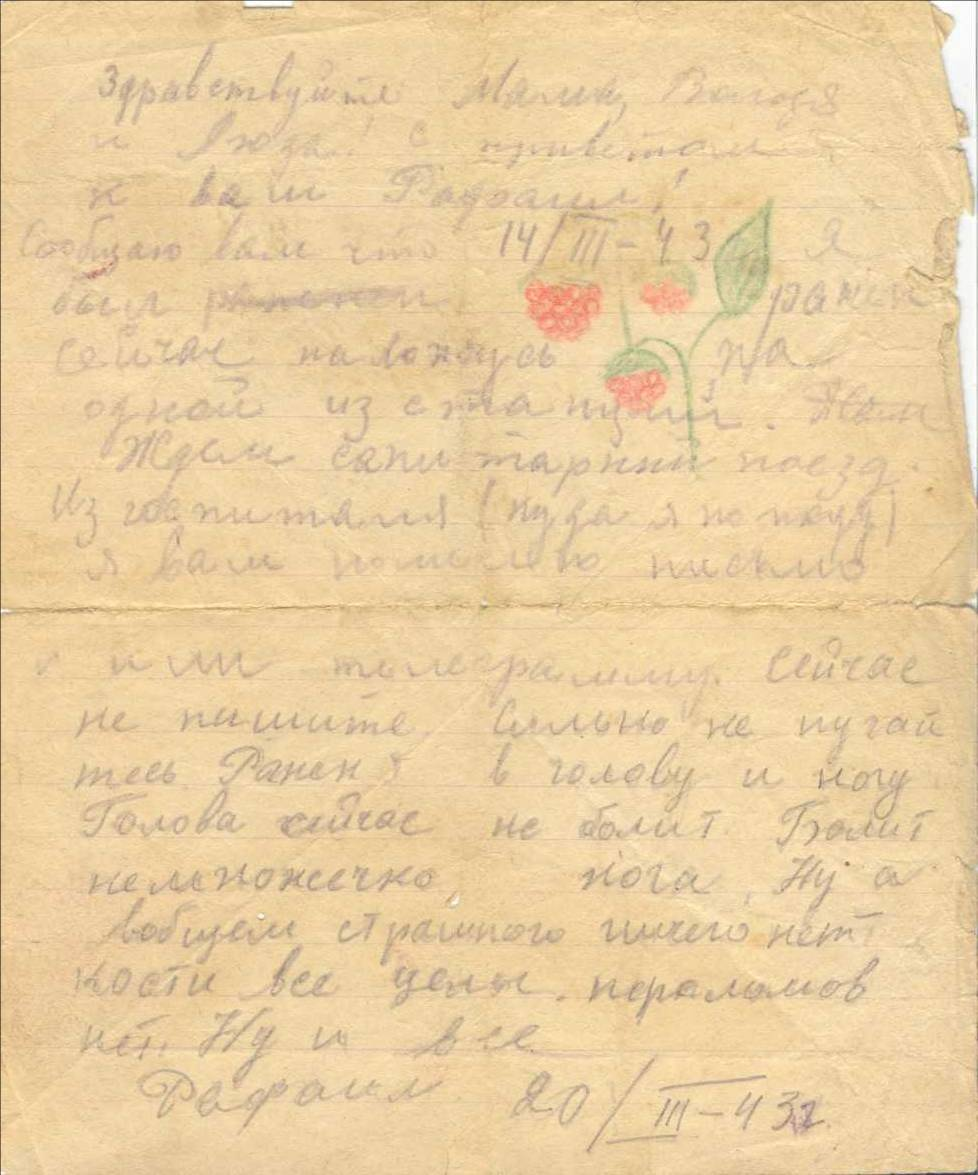 Здравствуйте Мамин, Володя
и Люда! С приветом
к вам Рафаил!
Сообщаю вам что 14/III-43 я
был ранен
сейчас нахожусь на
одной из станций.
Ждем санитарный поезд.
Из госпиталя (куда я попаду)
я вам пошлю письмо
или телеграмму. Сейчас
не пишите. Сильно не пугай
тесь. Ранен я в голову и ногу
Голова сейчас не болит. Болит
немножечко, нога, Ну а
вобщем страшного ничего нет
кости все целы. пераломов
нет. Ну и все
Рафаил 20/III-43г.